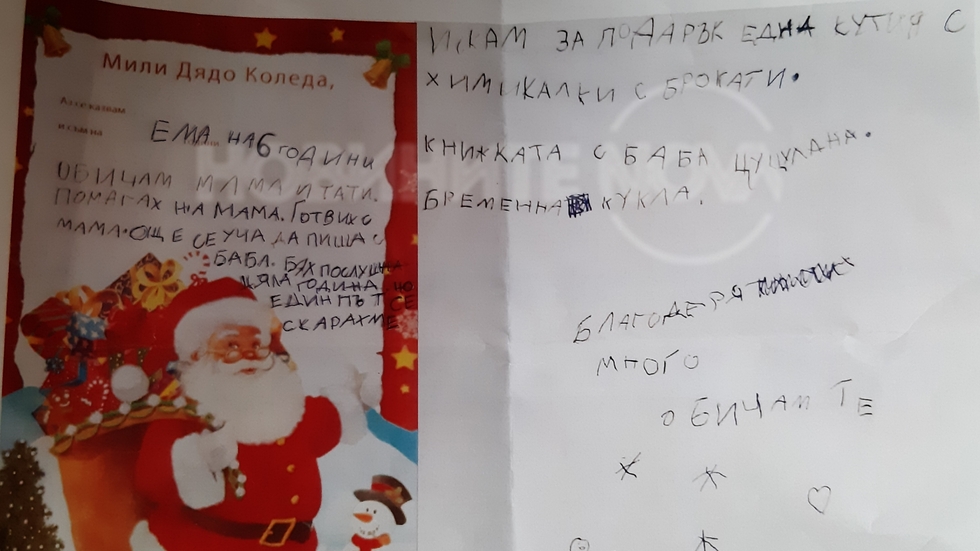 Мили Дядо Коледа,
Аз се казвам
ЕМА НА 6 ГОДИНИ
и съм на
ОБИЧАМ МАМА И ТАТИ.
ПОМАГАХ НА МАМА. ГОТВИХ С
МАМА. ОЩЕ СЕ УЧА ДА ПИША С
БАБЛ. БЯХ ПОСЛУШНА
ЦЯЛА ГОДИНА, НО
ЕДИН ПЪТ СЕ
СКАРАХМЕ
ИСКАМ ЗА ПОДАРЪК ЕДНА КУТИЯ С
ХИМИКАЛКИ С БРОКАТИ.
КНИЖКАТА С БАБА ЦУЦУЛАНА.
БРЕМЕННА КУКЛА.
БЛАГОДЕРЯ
МНОГО
ОБИЧАМ ТЕ